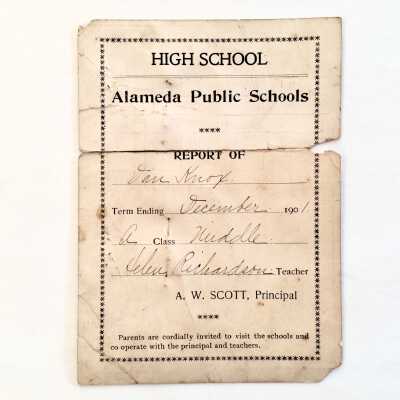 HIGH SCHOOL
Alameda Public Schools
****
REPORT OF
Dan Knox
Term Ending December 1901
A Class Middle
Helen Richardson Teacher
A. W. SCOTT, Principal
****
Parents are cordially invited to visit the schools and
co operate with the principal and teachers.